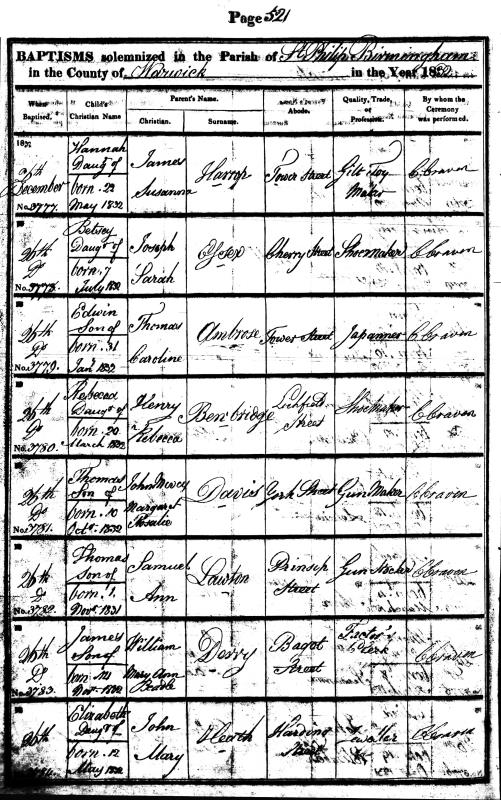 Page 521
BAPTISMS solemnized in the Parish of St Philip Birmingham
in the County of Warwick in the Year 1832
When Baptised. Child's Christian Name Parent's Name. Christian. Surname. Abode. Quality, Trade, or Profession. By whom the Ceremony was performed.
1832
26th December No. 3777. Hannah Daugr of born 22 May 1832 James Susanna Harrop Tower Street Gilt Toy Maker C Craven
26th Do No. 3778. Betsey Daugr of born 7 July 1832 Joseph Sarah Essex Cherry Street Shoemaker C Craven
26th Do No. 3779. Edwin Son of born 31 Jany 1832 Thomas Caroline Ambrose Tower Street Japanner C Craven
26th Do No. 3780. Rebecca Daugr of born 20 March 1832 Henry Rebecca Benbridge Street Shoemaker C Craven
26th Do No. 3781. Thomas Son of born 10 Octr 1832 John Margaret Rosalie Davis York Street Gun Maker C Craven
26th Do No. 3782. Thomas Son of born 1 Novr 1831 Samuel Ann Lawton Prinsep Street Gun Stocker C Craven
26th Do No. 3783. James Son of born Novr 1832 William Mary Ann Derry Bagot Street Factor's Clerk C Craven
26th Elizabeth Daugr of born 12 May 1832 John Mary Harding Street C Craven